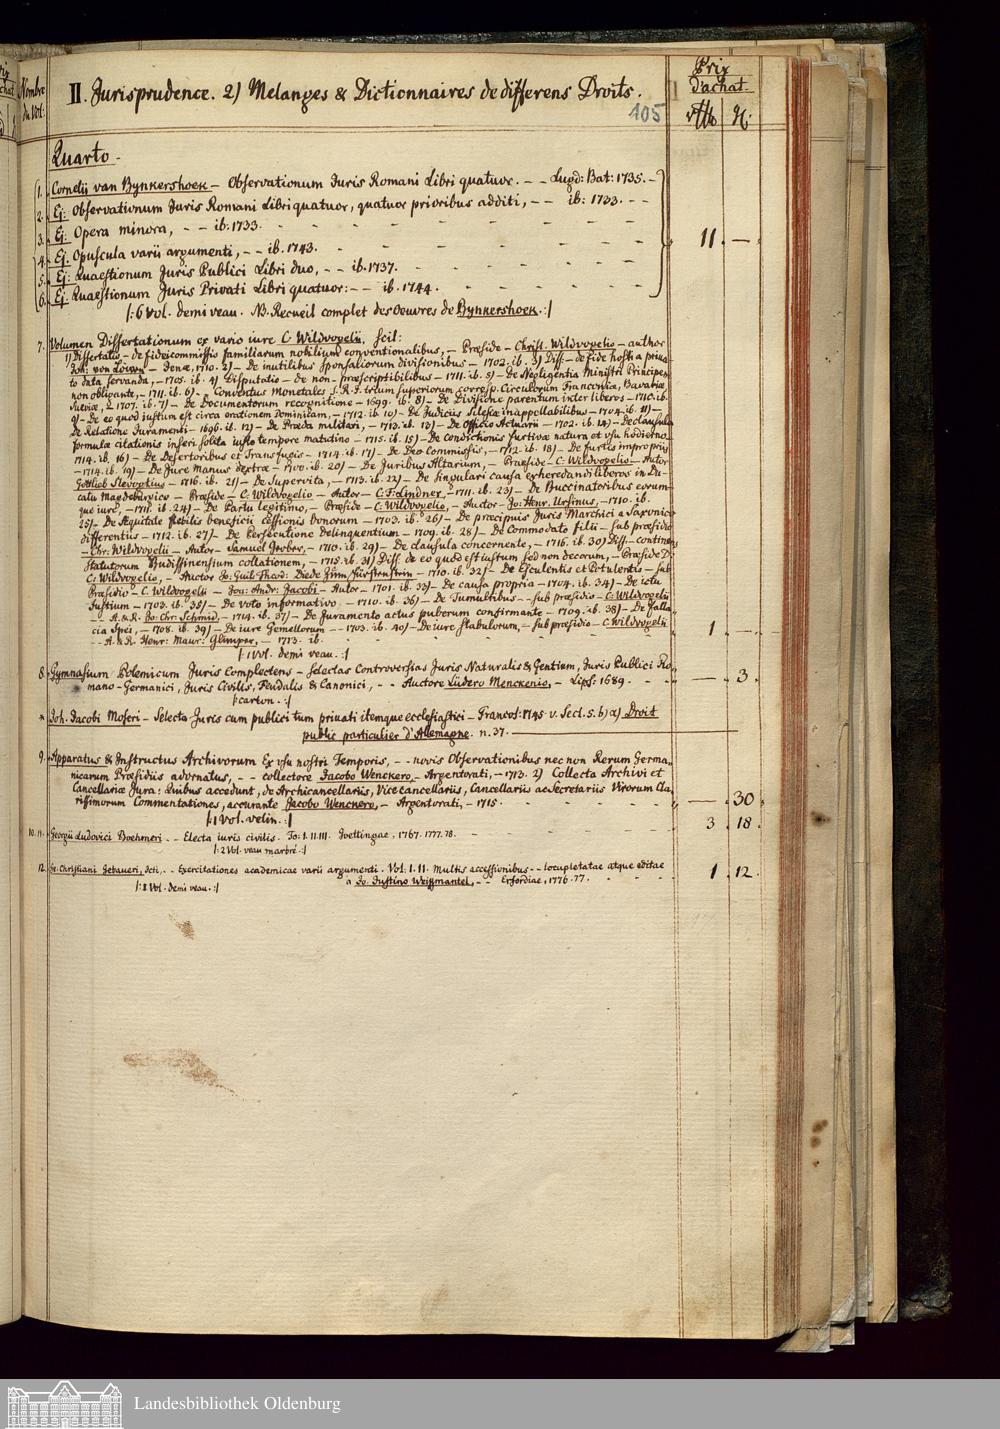 Nombre du Vol:
II. Jurisprudence. 2) Melanges & Dictionnaires de differens Droits.
105
Prix d'achat.
Quarto.
1. Cornelii van Bynkershoek – Observationum Juris Romani Libri quatuor. – – Lugd: Bat: 1735. –
2. Ej: Observationum Juris Romani Libri quatuor, quatuor prioribus additi, – – ib: 1733. – –
3. Ej: Opera minora, – – ib. 1733.
4. Ej. Opuscula varii argumenti, – – ib. 1743. 11. –
5. Ej: Quaestionum Juris Publici Libri duo, – – ib. 1737.
6. Ej: Quaestionum Juris Privati Libri quatuor: – – ib. 1744.
/: 6 Vol. demi veau. NB. Recueil complet des Oeuvres de Bynkershoek. :/
7. Volumen Dissertationum ex vario iure C. Wildvogelii, scil:
1) Dissertatio – de fideicommissis familiarum nobilium conventionalibus, – Præside – Christ. Wildvogelio – author
Joh: von Löwen – Jenæ, 1710. 2) – De inutilibus sponsaliorum divisionibus – 1702. ib. 3) Diss. – de fide hosti a priva-
to data servanda, – 1705. ib. 4) Disputatio – de non – præscriptibilibus – 1711. ib. 5) – De Negligentia Ministri Principem
non obligante, – 1711. ib. 6) – Conventus Monetales S. R. I. trium superiorum corresp. Circulorum Franconiæ, Bavariæ,
Sueviæ, 1707. ib. 7) – De Documentorum recognitione – 1699. ib. 8) – De Divisione parentum inter liberos – 1710. ib.
9) – De eo quod iustum est circa orationem Dominicam, – 1712. ib. 10) – De Judiciis Silesiæ inappellabilibus – 1704. ib. 11) –
De Relatione Juramenti – 1696. ib. 12) – De Præda militari, – 1713. ib. 13) – De Officio Actuarii – 1702. ib. 14) – De clausula
formulæ citationis inseri solita iusto tempore matutino – 1715. ib. 15) – De condictionis furtivæ natura et usu hodierno
1714. ib. 16) – De Desertoribus et Transfugis – 1714. ib. 17) – De Deo Commissis, – 1712. ib. 18) – De furtis impropriis
– 1714. ib. 19) – De Jure Manus dextræ – 1700. ib. 20) – De Juribus Altarium, – Præside – C. Wildvogelio – Autor
Gottlieb Slevogtius – 1716. ib. 21) – De Supervita, – 1713. ib. 22) – De singulari causa exheredandi liberos in Du-
catu Magdeburgico – Præside – C. Wildvogelio – Autor – C. F. Lindner, – 1711. ib. 23) – De Buccinatoribus eorum-
que iure, – 1711. ib. 24) – De Partu legitimo, – Præside – C. Wildvogelio, – Auctor – Jo: Henr. Ursinus, – 1710. ib.
25) – De Æquitate flebilis beneficii cessionis bonorum – 1703. ib. 26) – De præcipuis Juris Marchici a Saxonico
differentiis – 1712. ib. 27) – De Persecutione Delinquentium – 1709. ib. 28) – De Commodato filii – sub præsidio
– Chr: Wildvogelii – Autor – Samuel Gerber, – 1710. ib. 29) – De clausula concernente, – 1716. ib. 30) Diss. – continens
Statutorum Budissinensium collationem, – 1715. ib. 31) Diss. de eo quod est iustum sed non decorum, – Præside D.
C. Wildvogelio, – Auctor – 1710. ib. 32) – De Esculentis et Potulentis – sub
Præsidio – C. Wildvogelii – Jou: Andr: Jacobi – Autor – 1701. ib. 33) – De causa propria – 1704. ib. 34) – De ictu
fustium – 1703. ib. 35) – De voto informativo – 1710. ib. 36) – De Tumultibus – – sub præsidio – C. Wildvogelii
– – A. & R. Bo: Chr: Schmid, – 1714. ib. 37) – De Juramento actus puberum confirmante – 1709. ib. 38) – De falla-
cia Spei, – 1708. ib. 39) – De iure Gemellorum – – 1703. ib. 40) – De iure stabulorum, – sub præsidio – C. Wildvogelii 1. –
– – A. & R. Henr: Maur: Glimper, – 1713. ib.
/: 1 Vol. demi veau. :/
8. Gymnasium Polemicum Juris Complectens – Selectas Controversias Juris Naturalis & Gentium, Juris Publici Ro- – 3.
mano-Germanici, Juris Civilis, Feudalis & Canonici, – – Auctore Lüdero Menckenio, – Lips: 1689.
/: carton. :/
* Joh. Jacobi Moseri – Selecta Juris cum publici tum privati itemque ecclesiastici – Francof: 1745 v. Sect. 5. b) α) Droit
public particulier d'Allemagne. n. 37.
9. Apparatus & Instructus Archivorum Ex usu nostri Temporis, – – novis Observationibus nec non Rerum Germa-
nicarum Præsidiis adornatus, – – collectore Jacobo Wenckero, – Argentorati, – 1713. 2) Collecta Archivi et
Cancellariæ Jura: Quibus accedunt, de Archicancellariis, Vice Cancellariis, Cancellariis ac Secretariis Virorum Cla-
rissimorum Commentationes, accurante Jacobo Wenckero, – Argentorati, – 1715. – 30
/: 1 Vol. velin. :/
10. 11. Georgii Ludovici Boehmeri – – Electa iuris civilis. To: I. II. III. Goettingae, 1767. 1777. 78. 3. 18.
/: 2 Vol. veau marbré :/
12. Ge. Christiani Gebaueri, Jcti, – – Exercitationes academicae varii argumenti. Vol: I. II. Multis accessionibus – – locupletatae atque editae 1. 12.
a Jo. Justino Weissmantel, – – Erfordiae, 1776. 77.
/: 2 Vol. demi veau. :/
Landesbibliothek Oldenburg